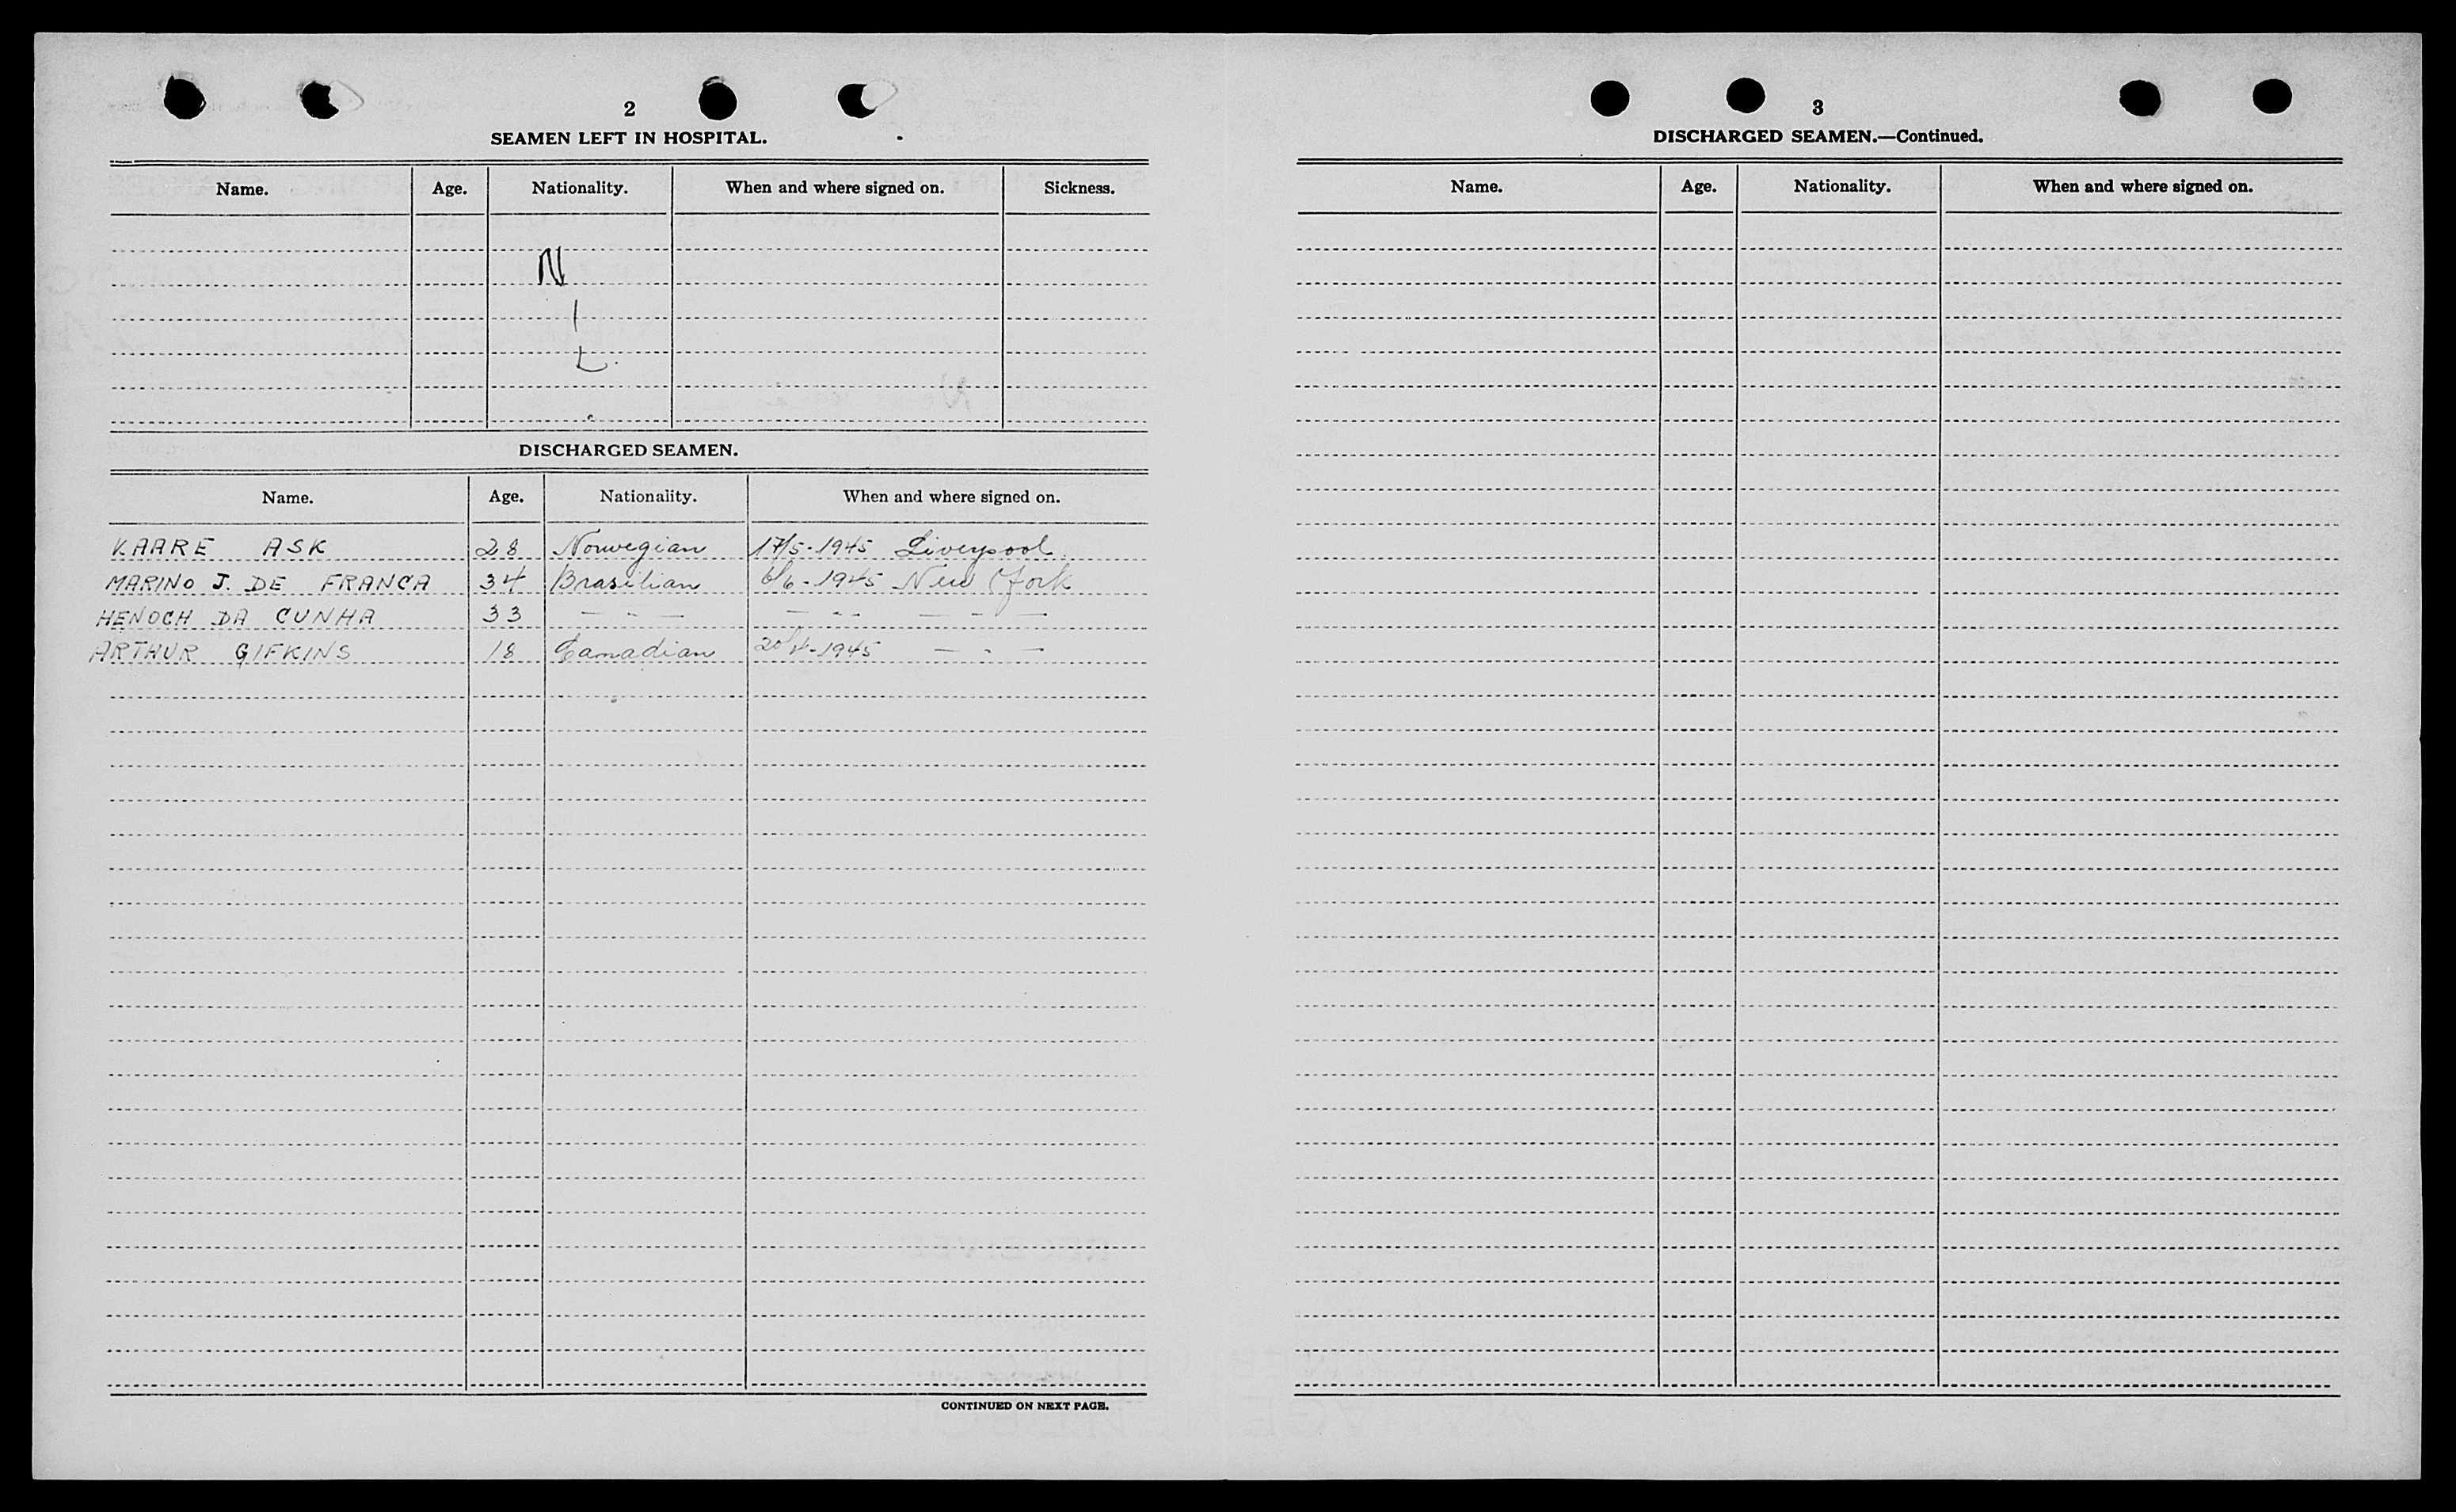 2
SEAMEN LEFT IN HOSPITAL.
Name. Age. Nationality. When and where signed on. Sickness.
N
I
L.
DISCHARGED SEAMEN.
Name. Age. Nationality. When and where signed on.
KAARE ASK 28 Norwegian 17/5-1945 Liverpool
MARINO J. DE FRANCA 34 Brasilian 6/6-1945 New York
HENOCH DA CUNHA 33 — " — — " — — " —
ARTHUR GIFKINS 18 Canadian 20/4-1945 — " —
CONTINUED ON NEXT PAGE.
3
DISCHARGED SEAMEN.—Continued.
Name. Age. Nationality. When and where signed on.